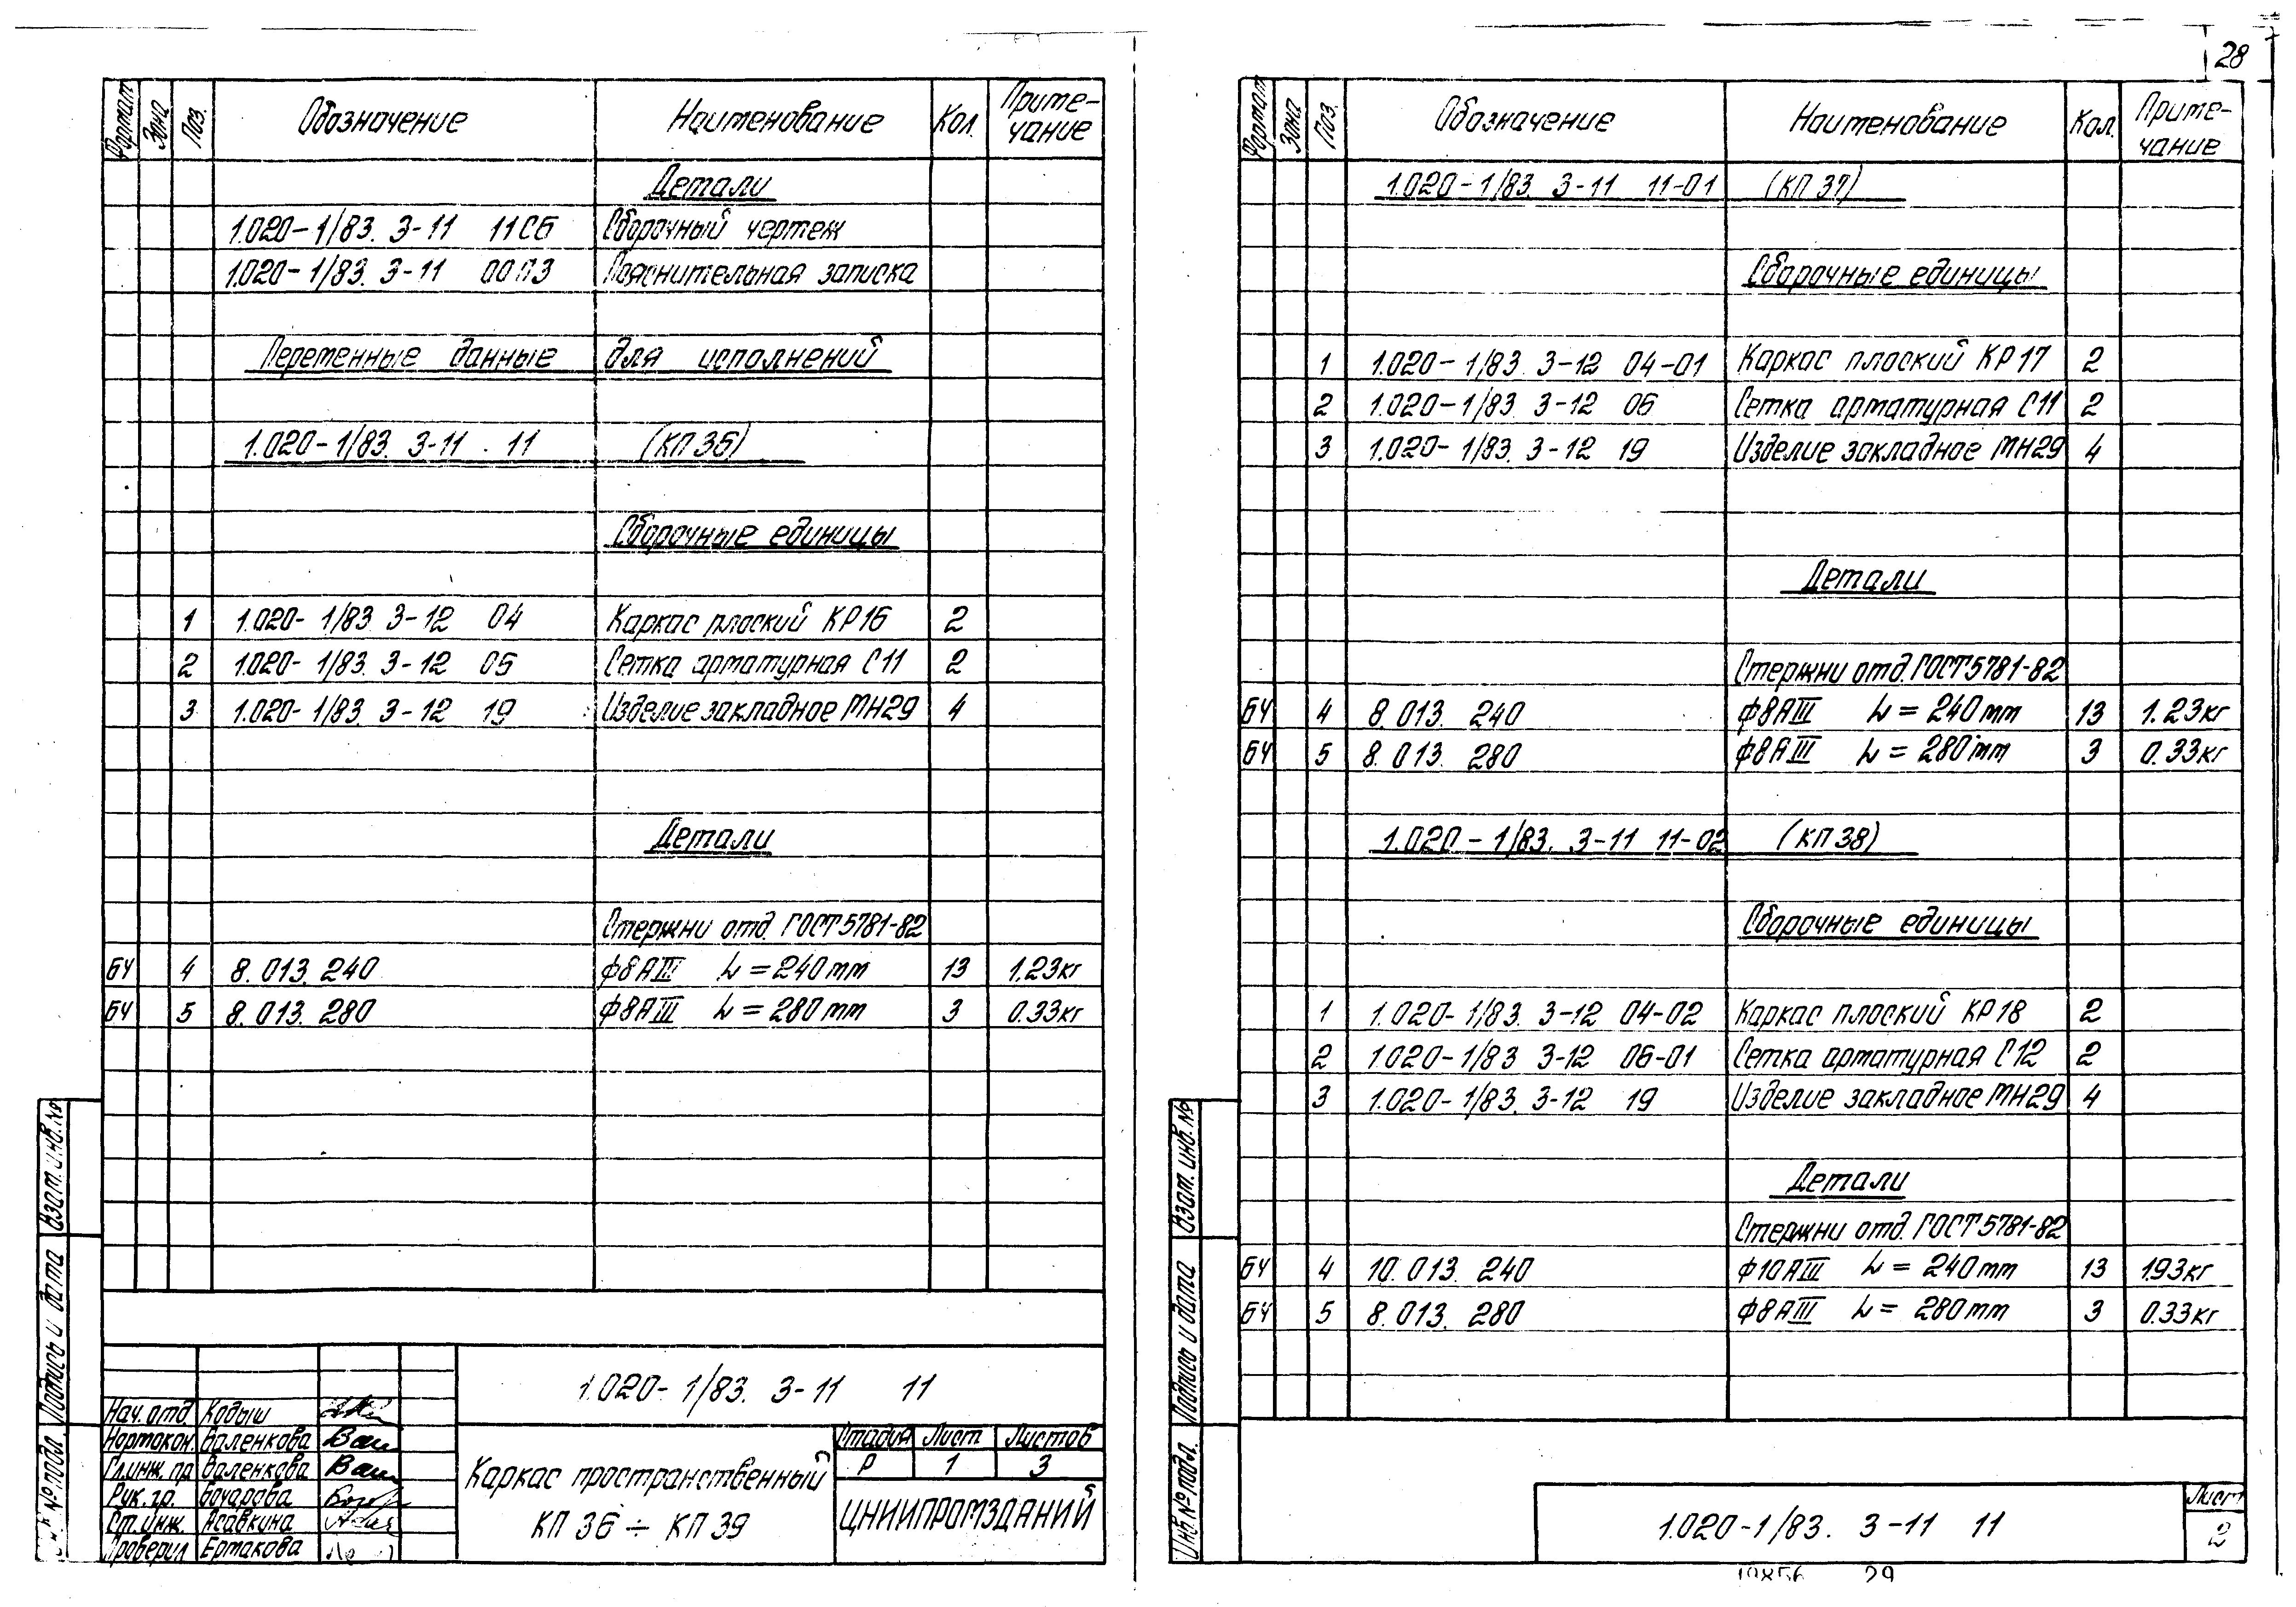 28
Формат Зона Поз. Обозначение Наименование Кол. Приме-чание
Детали
1.020-1/83. 3-11 11СБ Сборочный чертеж
1.020-1/83. 3-11 00ПЗ Пояснительная записка
Переменные данные для исполнений
1.020-1/83. 3-11 11 (КП 36)
Сборочные единицы
1 1.020-1/83 3-12 04 Каркас плоский КР16 2
2 1.020-1/83 3-12 06 Сетка арматурная С11 2
3 1.020-1/83 3-12 19 Изделие закладное МН29 4
Детали
Стержни отд. ГОСТ 5781-82
БЧ 4 8.013.240 ф8АIII L=240мм 13 1.23кг
БЧ 5 8.013.280 ф8АIII L=280мм 3 0.33кг
Взам. инв. №
Подпись и дата
№ подл.
1.020-1/83. 3-11 11
Нач. отд. Кодыш
Нормокон. Валенкова
Гл. инж. пр. Валенкова
Рук. гр. Бочарова
Ст. инж. Асавкина
Проверил Ермакова
Каркас пространственный
КП 36 ÷ КП 39
Стадия Лист Листов
Р 1 3
ЦНИИПРОМЗДАНИЙ
Формат Зона Поз. Обозначение Наименование Кол. Приме-чание
1.020-1/83. 3-11 11-01 (КП 37)
Сборочные единицы
1 1.020-1/83 3-12 04-01 Каркас плоский КР17 2
2 1.020-1/83 3-12 06 Сетка арматурная С11 2
3 1.020-1/83. 3-12 19 Изделие закладное МН29 4
Детали
Стержни отд. ГОСТ 5781-82
БЧ 4 8.013.240 ф8АIII L=240мм 13 1.23кг
БЧ 5 8.013.280 ф8АIII L=280мм 3 0.33кг
1.020-1/83. 3-11 11-02 (КП 38)
Сборочные единицы
1 1.020-1/83. 3-12 04-02 Каркас плоский КР18 2
2 1.020-1/83 3-12 06-01 Сетка арматурная С12 2
3 1.020-1/83. 3-12 19 Изделие закладное МН29 4
Детали
Стержни отд. ГОСТ 5781-82
БЧ 4 10.013.240 ф10АIII L=240мм 13 1.93кг
БЧ 5 8.013.280 ф8АIII L=280мм 3 0.33кг
Взам. инв. №
Подпись и дата
Инв. № подл.
1.020-1/83. 3-11 11
Лист
2
19856 29